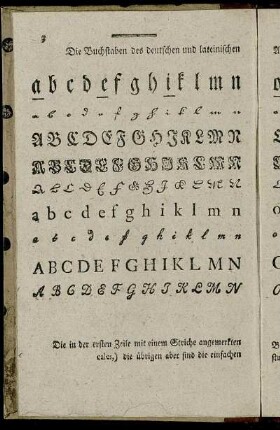 3
Die Buchstaben des deutschen und lateinischen
a b c d e f g h i k l m n
a b c d e f g h i k l m n
A B C D E F G H J K L M N
A B C D E F G H J K L M N
A B C D E F G H J K L M N
a b c d e f g h i k l m n
a b c d e f g h i k l m n
A B C D E F G H I K L M N
A B C D E F G H I K L M N
Die in der ersten Zeile mit einem Striche angemerkten
cales,) die übrigen aber sind die einfachen